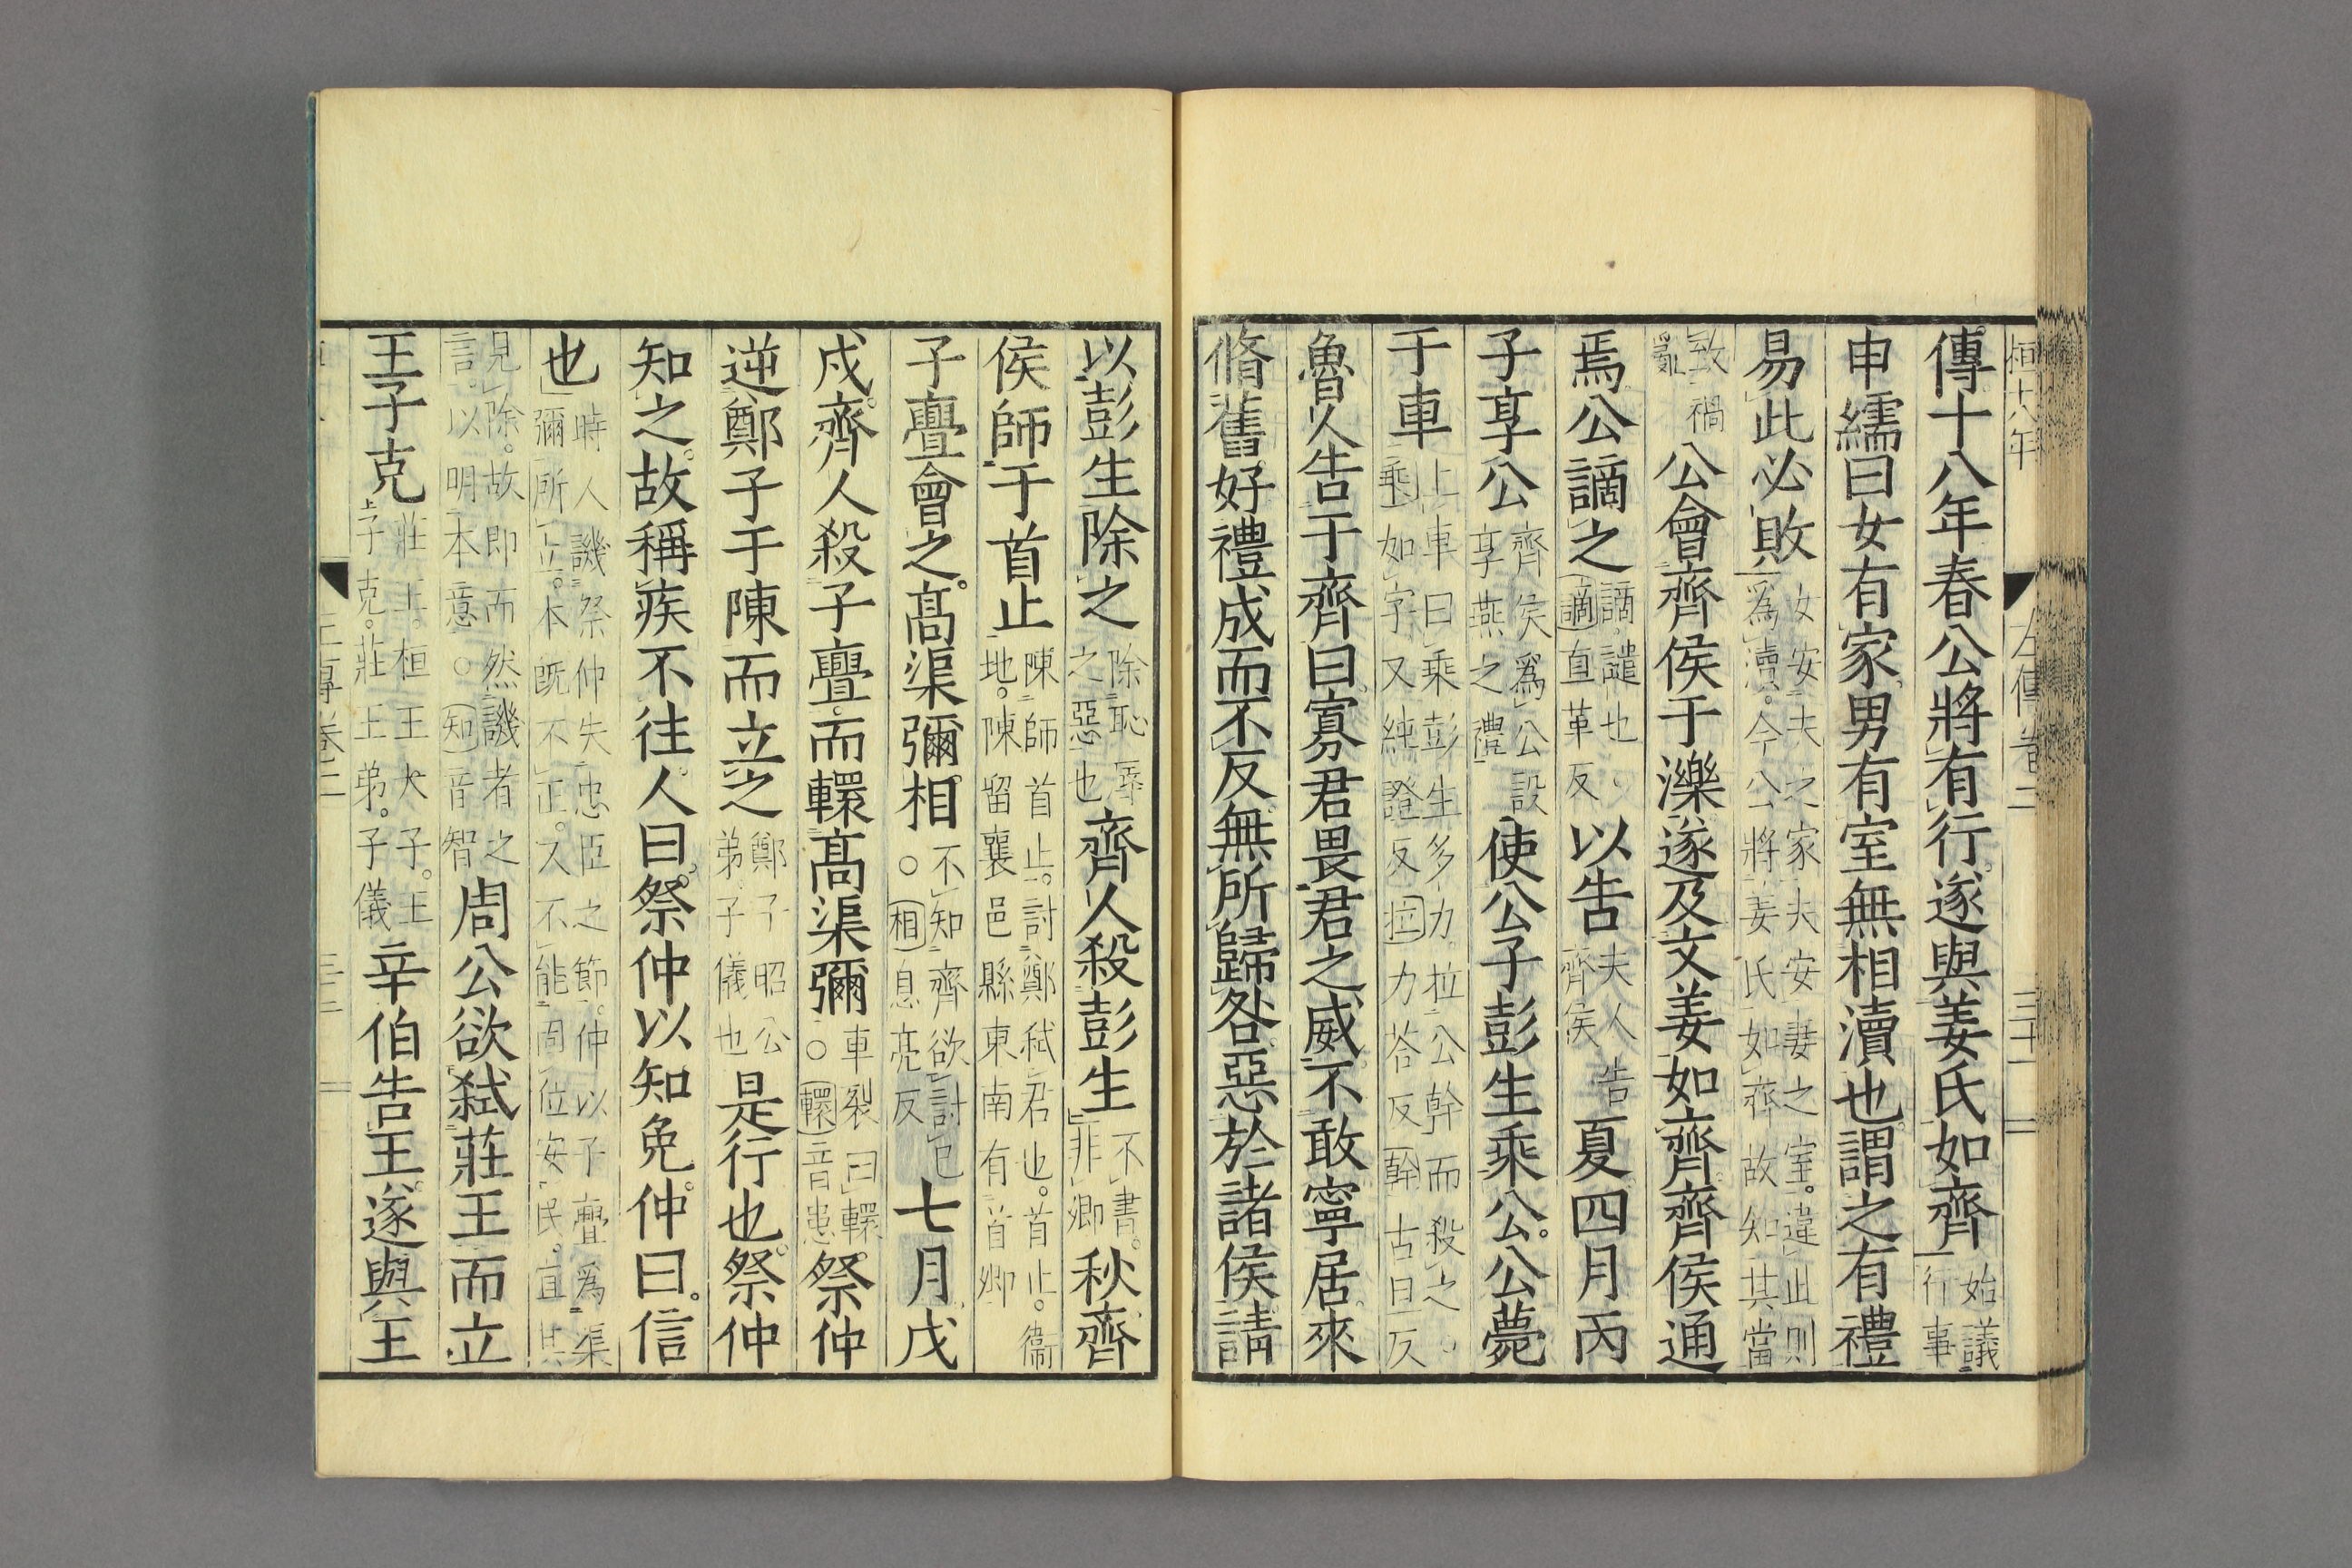 桓十八年
左傳卷二
三十一
傳十八年春公將有行遂與姜氏如齊始議行事
申繻曰女有家男有室無相瀆也謂之有禮
易此必敗女安夫之家夫安妻之室違此則爲瀆今公將姜氏如齊故知其當
致禍亂公會齊侯于濼遂及文姜如齊齊侯通
焉公謫之謫譴也謫直革反以告夫人告齊侯夏四月丙
子享公齊侯爲公設享燕之禮使公子彭生乘公公薨
于車上車曰乘彭生多力拉公幹而殺之乘如字又純證反拉力荅反幹古旦反
魯人告于齊曰寡君畏君之威不敢寧居來
脩舊好禮成而不反無所歸咎惡於諸侯請
以彭生除之除恥辱之惡也齊人殺彭生不書非卿秋齊
侯師于首止陳師首止討鄭弒君也首止衞地陳留襄邑縣東南有首鄉
子亹會之高渠彌相不知齊欲討已○相息亮反七月戊
戌齊人殺子亹而轘高渠彌車裂曰轘○轘音患祭仲
逆鄭子于陳而立之鄭子昭公弟子儀也是行也祭仲
知之故稱疾不往人曰祭仲以知免仲曰信
也時人譏祭仲失忠臣之節仲以子亹爲渠彌所立本既不正又不能固位安民宜其
見除故即而然譏者之言以明本意○知音智周公欲弒莊王而立
王子克莊王桓王大子王子克莊王弟子儀辛伯告王遂與王